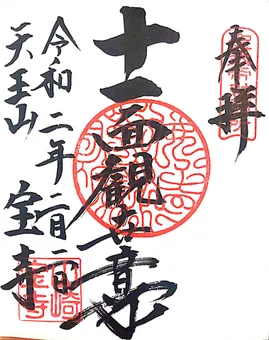 奉拝
十一面観世音
令和二年二月
天王山 宝寺